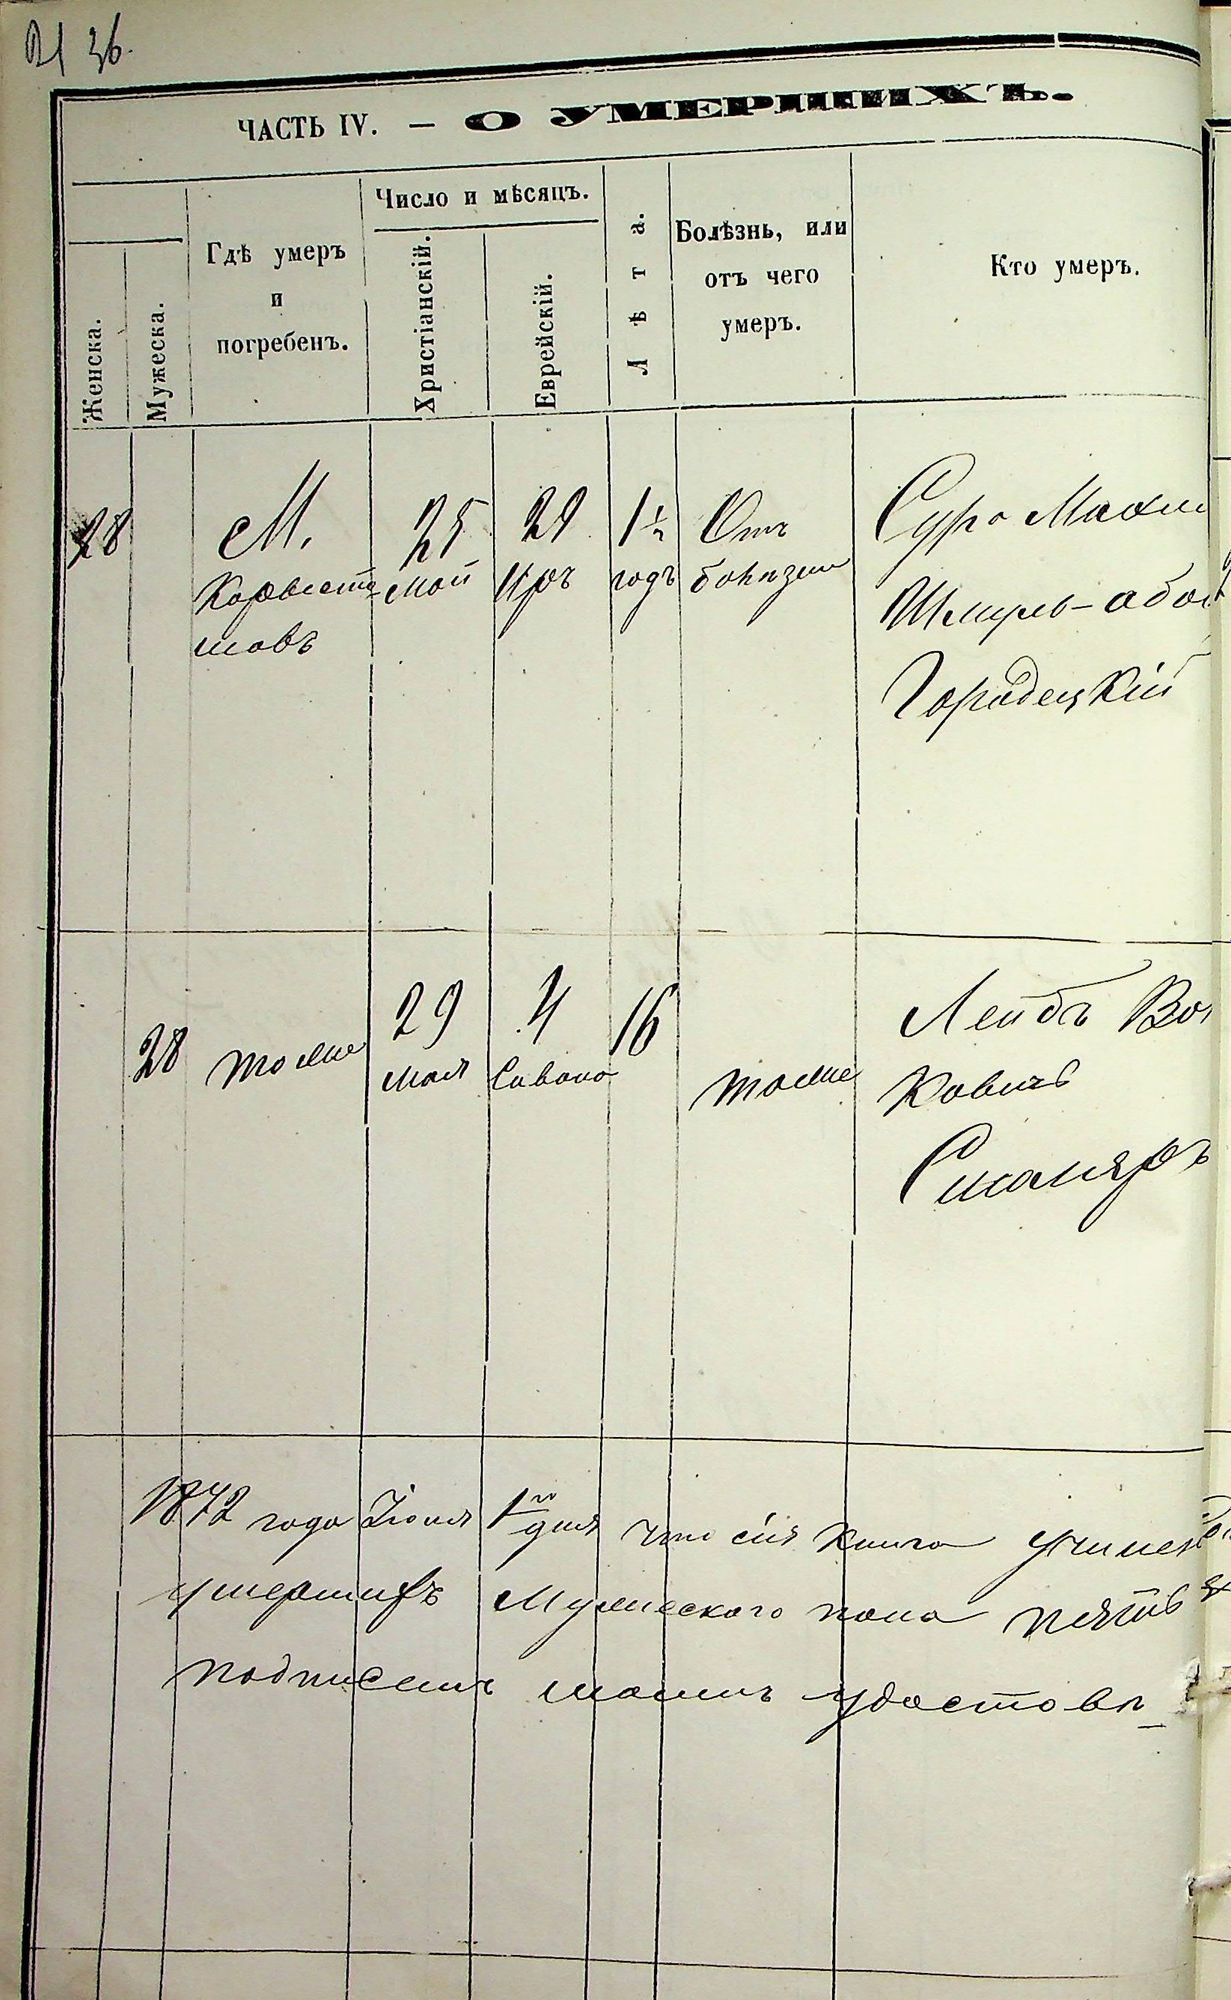 36.
ЧАСТЬ IV. — О УМЕРШИХЪ.
Женска.
Мужеска.
Гдѣ умеръ
и
погребенъ.
Число и мѣсяцъ.
Христіанскій.
Еврейскій.
Лѣта.
Болѣзнь, или
отъ чего
умеръ.
Кто умеръ.
28
М.
шовъ
25
Май
29
Иръ
1½
годъ
Отъ
болѣзни
Сура
Шмуль-або
Городецкій
28
тоже
29
мая
4
Сивана
16
тоже
Лейбъ Во
ковичъ
Смоляръ
1872 года Іюня 1го дня что сія книга учинен
умершихъ Мужескаго пола пять
подписемъ нашимъ удостовѣ-